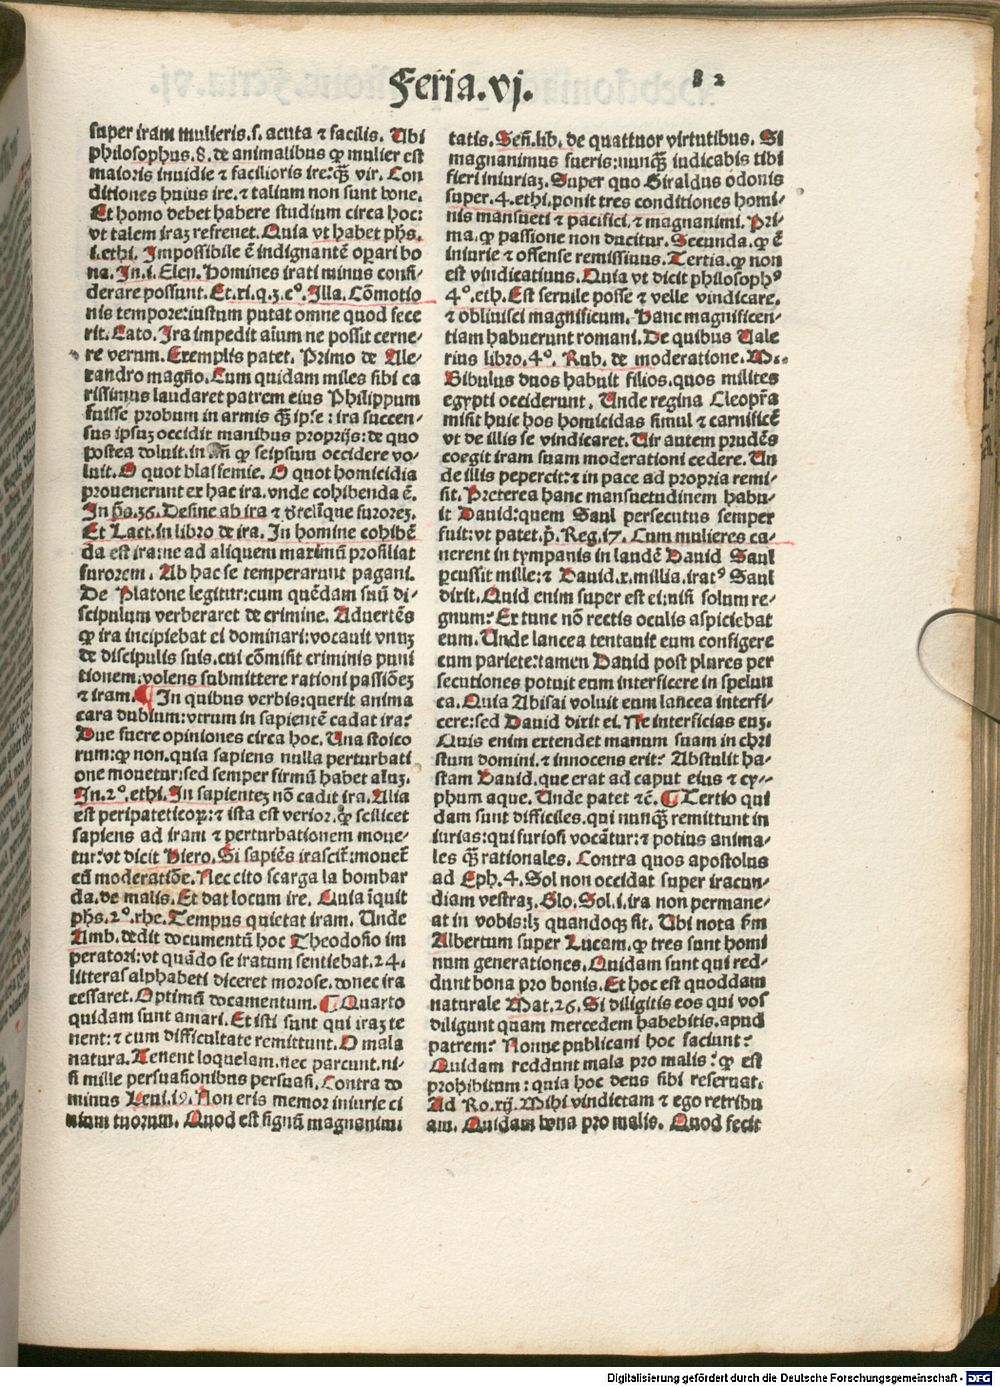 Feria.vj.
82
super iram mulieris.s. acuta ⁊ facilis. Ubi
philosophus.8. de animalibus ꝙ mulier est
maioris inuidie ⁊ facilioris ire:qᷓꝫ vir. Con
ditiones huius ire. ⁊ talium non sunt bone.
Et homo debet habere studium circa hoc:
vt talem iraꝫ refrenet. Quia vt habet phs.
i.ethi. Impossibile ē indignantē oꝑari bo
na. In.i. Elen. Homines irati minus consi⸗
derare possunt. Et.xi.q.3.c°. Illa. Cōmotio
nis tempore:iustum putat omne quod fece
rit. Cato. Ira impedit aīum ne possit cerne⸗
re verum. Exemplis patet. Primo de Ale⸗
xandro magño. Cum quidam miles sibi ca
rissimus laudaret patrem eius Philippum
fuisse probum in armis qᷓꝫ ipse: ira succen⸗
sus ipsuꝫ occidit manibus proprijs: de quo
postea doluit. in ꝙ seipsum occidere vo⸗
luit. O quot blasfemie. O quot homicidia
prouenerunt ex hac ira. vnde cohibenda ē.
In p̄s.36. Desine ab ira ⁊ dereliq̄ue furoreꝫ.
Et Lact. in libro de ira. In homine cohibē
da est ira:ne ad aliquem maximū prosiliat
furorem. Ab hac se temperarunt pagani.
De Platone legitur:cum quēdam suū di⸗
scipulum verberaret de crimine. Aduertēs
ꝙ ira incipiebat ei dominari:vocauit vnuꝫ
de discipulis suis. cui cōmisit criminis puni
tionem:volens submittere rationi passiōeꝫ
⁊ iram. ¶ In quibus verbis:querit anima
cara dubium:vtrum in sapientē cadat ira?
Due fuere opiniones circa hoc. Una stoico
rum:ꝙ non. quia sapiens nulla perturbati
one mouetur:sed semper firmū habet aīuꝫ.
In.2°.ethi. In sapienteꝫ nō cadit ira. Alia
est peripateticoꝝ: ⁊ ista est verior. ꝙ scilicet
sapiens ad iram ⁊ perturbationem moue⸗
tur: vt dicit Hiero. Si sapiēs irascit̄:mouet̄
cū moderatiōe. Nec cito scarga la bombar
da. de malis. Et dat locum ire. Quia īquit
phs.2°.rhe. Tempus quietat iram. Unde
Amb. dedit documentū hoc Theodosio im
peratori:vt quādo se iratum sentiebat.24.
litteras alphabeti diceret morose. donec ira
cessaret. Optimū documentum. ¶ Quarto
quidam sunt amari. Et isti sunt qui iraꝫ te
nent: ⁊ cum difficultate remittunt. O mala
natura. Tenent loquelam. nec parcunt. ni⸗
si mille persuasionibus persuasi. Contra do
minus Leui.19. Non eris memor iniurie ci
uium tuorum. Quod est signū magnanimi
tatis. Señ. lib. de quattuor virtutibus. Si
magnanimus fueris:nunqᷓꝫ iudicabis tibi
fieri iniuriaꝫ. Super quo Giraldus odonis
super.4.ethi. ponit tres conditiones homi⸗
nis mansueti ⁊ pacifici. ⁊ magnanimi. Pri⸗
ma. ꝙ passione non ducitur. Secunda. ꝙ ē
iniurie ⁊ offense remissiuus. Tertia. ꝙ non
est vindicatiuus. Quia vt dicit philosophꝰ
4°. eth. Est seruile posse ⁊ velle vindicare.
⁊ obliuisci magnificum. Hanc magnificen⸗
tiam habuerunt romani. De quibus Uale
rius libro.4°. Rub. de moderatione. M.
Bibulus duos habuit filios. quos milites
egypti occiderunt. Unde regina Cleop̄ra
misit huic hos homicidas simul ⁊ carnificē
vt de illis se vindicaret. Uir autem prudēs
coegit iram suam moderationi cedere. Un
de illis pepercit: ⁊ in pace ad propria remi⸗
sit. Preterea hanc mansuetudinem habu⸗
it Dauid: quem Saul persecutus semper
fuit: vt patet. p̄. Reg. 17. Cum mulieres ca⸗
nerent in tympanis in laudē Dauid Saul
ꝑcussit mille: ⁊ Dauid.x.millia. iratꝰ Saul
dixit. Quid enim super est ei: nisi solum re⸗
gnum? Ex tunc nō rectis oculis aspiciebat
eum. Unde lancea tentauit eum configere
cum pariete: tamen Dauid post plures per
secutiones potuit eum interficere in spelun
ca. Quia Abisai voluit eum lancea interfi⸗
cere: sed Dauid dixit ei. Ne interficias euꝫ.
Quis enim extendet manum suam in chri
stum domini. ⁊ innocens erit? Abstulit ha⸗
stam Dauid. que erat ad caput eius ⁊ cy⸗
phum aque. Unde patet ⁊c. ¶ Tertio qui
dam sunt difficiles. qui nunqᷓꝫ remittunt in
iurias: qui furiosi vocātur: ⁊ potius anima⸗
les qᷓꝫ rationales. Contra quos apostolus
ad Eph.4. Sol non occidat super iracun⸗
diam vestraꝫ. Glo. Sol.i.ira non permane⸗
at in vobis: lꝫ quandoqꝫ sit. Ubi nota ẜm
Albertum super Lucam. ꝙ tres sunt homi
num generationes. Quidam sunt qui red⸗
dunt bona pro bonis. Et hoc est quoddam
naturale Mat.26. Si diligitis eos qui vos
diligunt quam mercedem habebitis. apud
patrem? Nonne publicani hoc faciunt?
Quidam reddunt mala pro malis: ꝙ est
prohibitum: quia hoc deus sibi reseruat.
Ad Ro.xij. Mihi vindictam ⁊ ego retribu
am. Quidam bona pro malis. Quod fecit
Digitalisierung gefördert durch die Deutsche Forschungsgemeinschaft - DFG